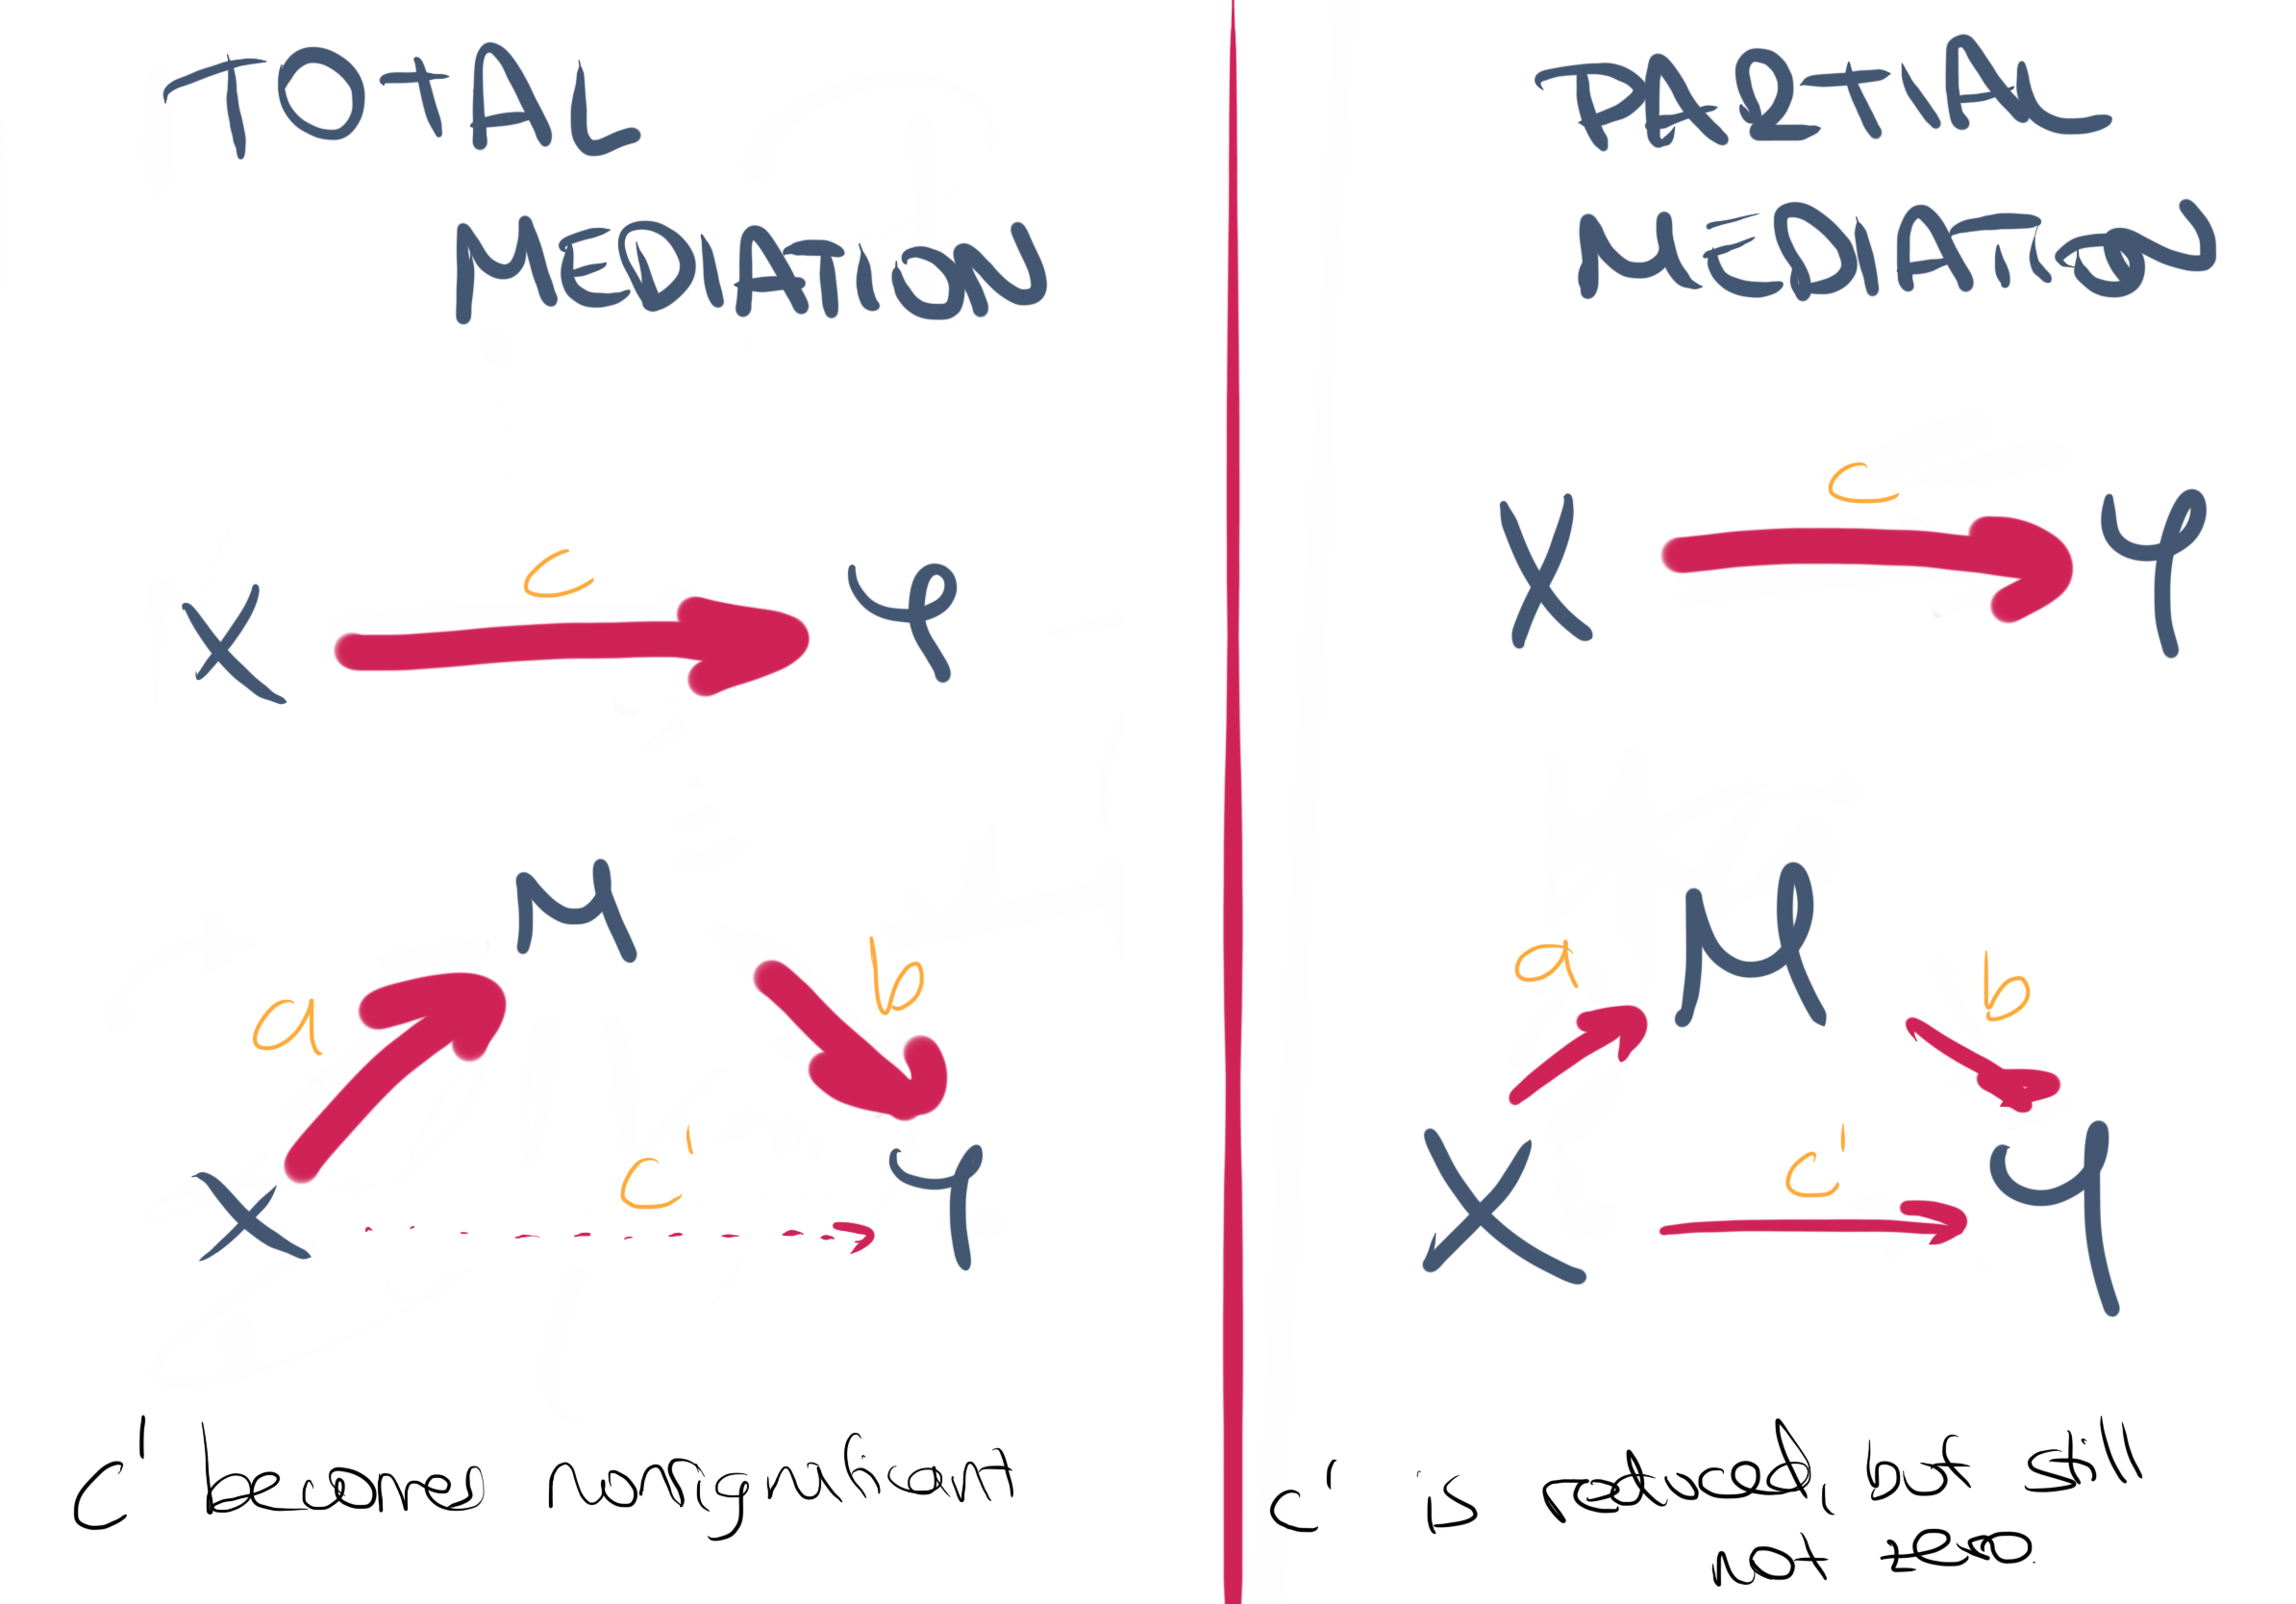 TOTAL
MEDIATION
X
c
Y
M
a
b
c'
X
Y
c' becomes nonsignificant
PARTIAL
MEDIATION
c
X
Y
M
a
b
c'
X
Y
c' is reduced, but still
not zero.